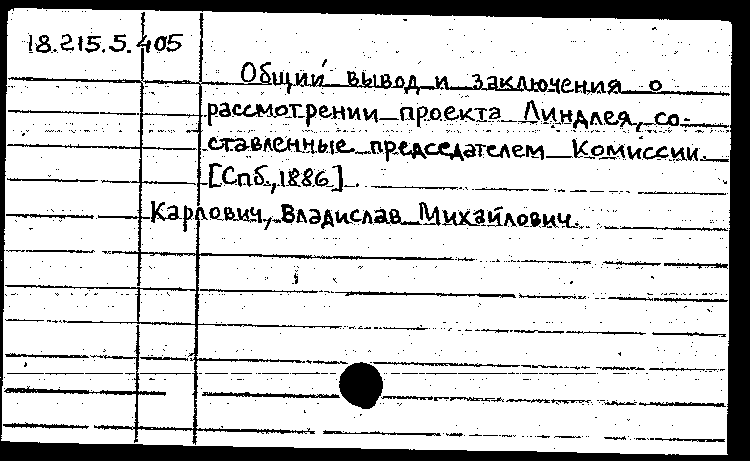 18.215.5.405
Общий вывод и заключения о
рассмотрении проекта Линдлея, со-
ставленные председателем Комиссии.
[Спб., 1886]
Карлович, Владислав Михайлович.